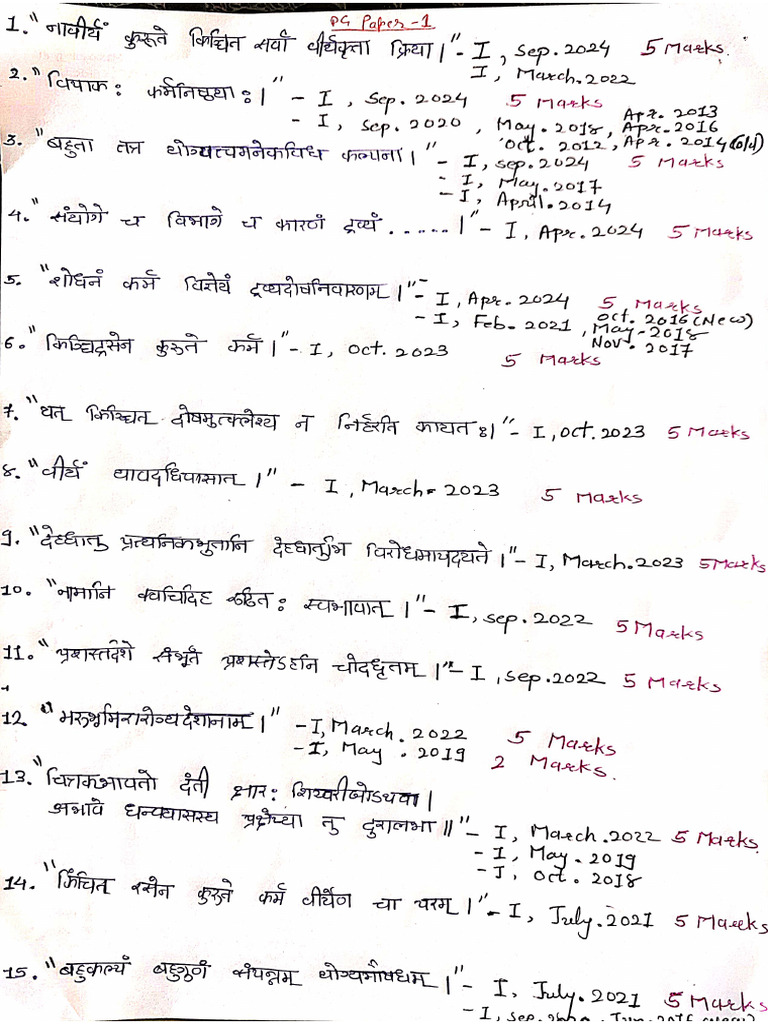 PG Paper-1
1. "नावीर्यं कुरूते किंचित सर्वा वीर्यकृता क्रिया।" - I, Sep. 2024 5 Marks.
I, March. 2022
2. "विपाक: कर्मनिष्ठया:।" - I, Sep. 2024 5 Marks
- I, Sep. 2020, May. 2018, Apr. 2016
Apr. 2013
Oct. 2012, Apr. 2014 (Old)
3. "बहुता तत्र योग्यत्वमनेकविध कल्पना।" - I, Sep. 2024 5 Marks
- I, May. 2017
- I, April. 2014
4. "संयोगे च विभागे च कारणं द्रव्यं ......।" - I, Apr. 2024 5 Marks
5. "शोधनं कर्म विज्ञेयं द्रव्यदोषनिवारणम।" - I, Apr. 2024 5 Marks
- I, Feb. 2021, May-2018
Oct. 2016 (New)
Nov. 2017
6. "किञ्चिद्रसेन कुरुते कर्म।" - I, Oct. 2023 5 Marks
7. "यत् किञ्चित् दोषमुत्क्लेश्य न निर्हरति कायतः।" - I, Oct. 2023 5 Marks
8. "वीर्यं यावदधिवासात्।" - I, March. 2023 5 Marks
9. "देहधातु प्रत्यनिकभुतानि विरोधमापद्यते।" - I, March. 2023 5 Marks
10. "नामानि क्वचिदिह रूढित: स्वभावात्।" - I, Sep. 2022 5 Marks
11. "प्रशस्तदेशे संभूतं प्रशस्तेऽहनि चोदधृतम।" - I, Sep. 2022 5 Marks
12 "मरुभूमिरारोग्यदेशानाम।" - I, March. 2022 5 Marks
- I, May. 2019 2 Marks.
13. "चित्रकभावतो दंती क्षार:
अभावे धन्वयासस्य प्रक्षेप्या तु दुरालभा॥" - I, March. 2022 5 Marks
- I, May. 2019
- I, Oct. 2018
14. "किंचित रसेन कुरुते कर्म वीर्येण चा परम।" - I, July. 2021 5 Marks
15. "बहुकल्पं बहुगुणं संपन्नम योग्यमौषधम।" - I, July. 2021 5 Marks
- I, Sep.